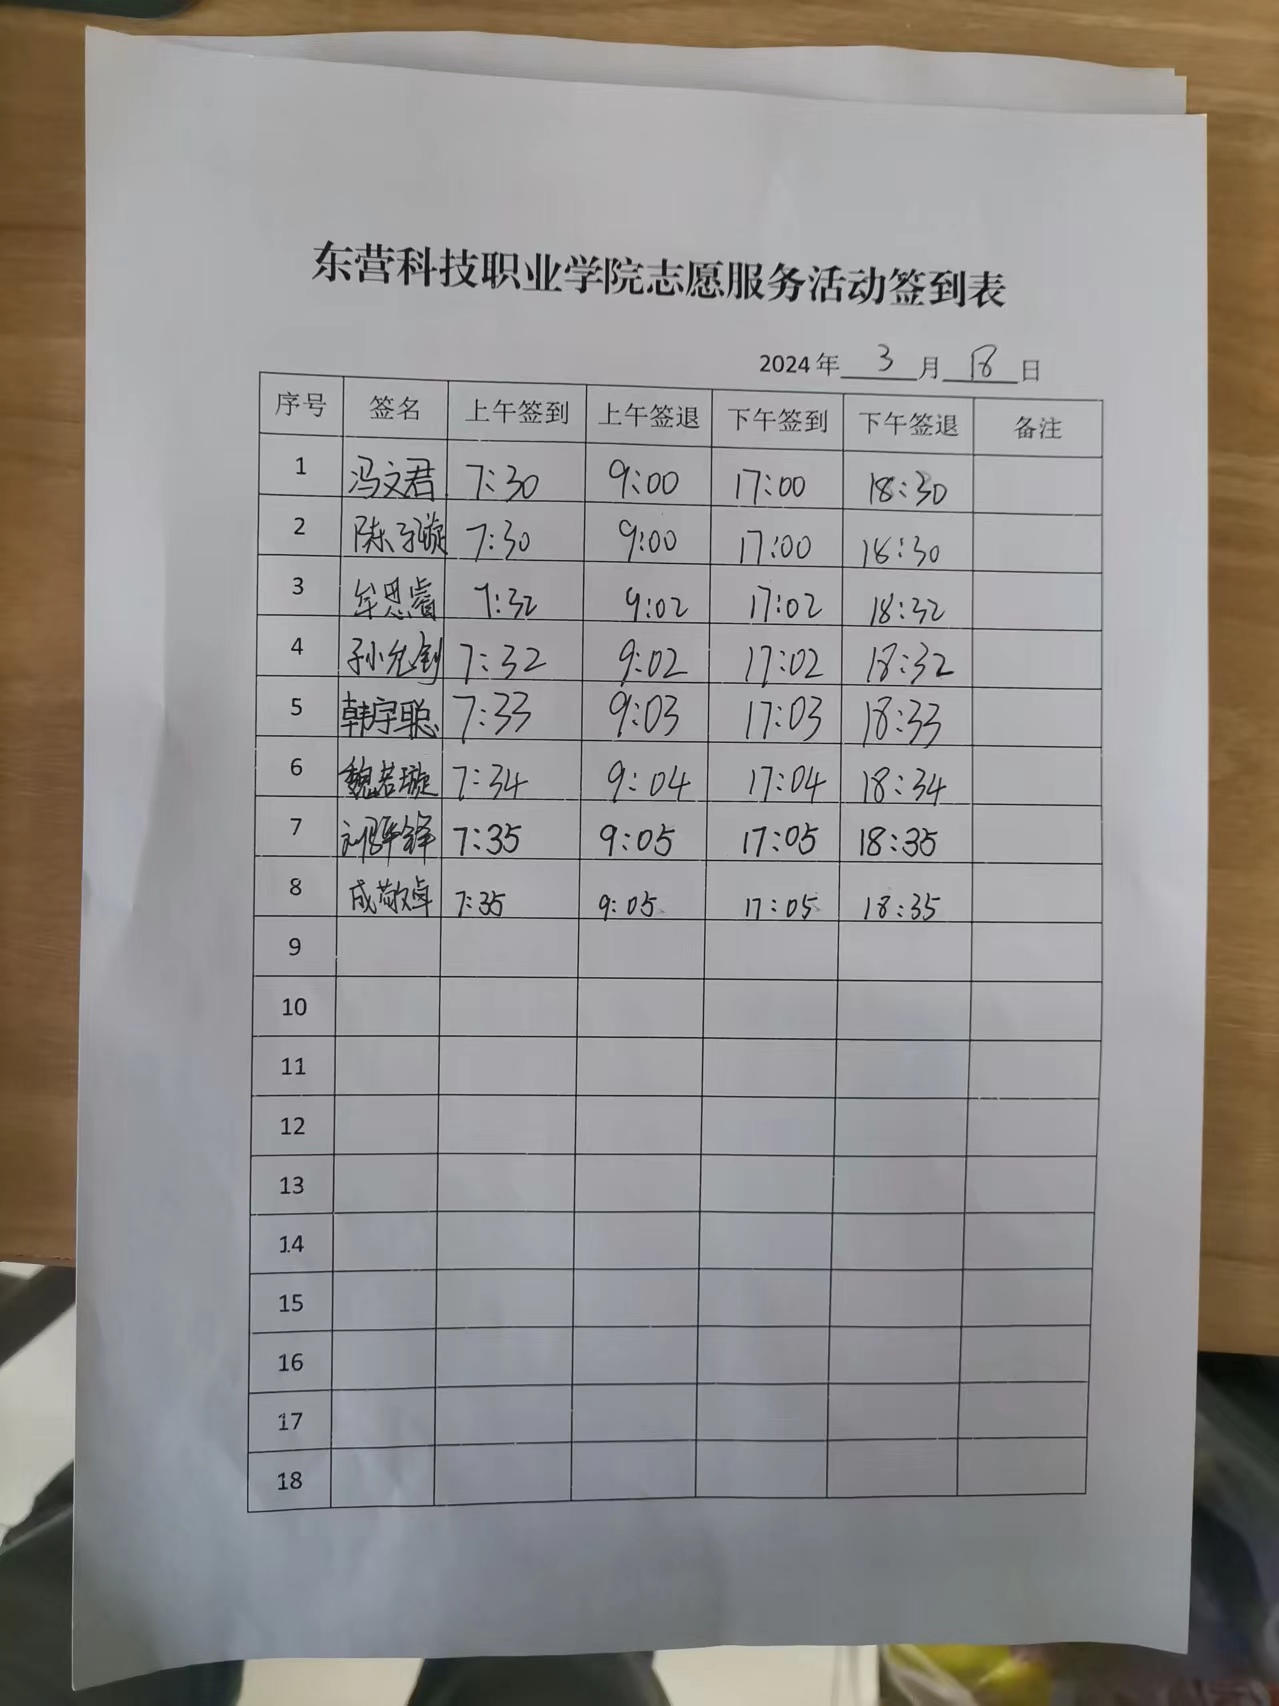 东营科技职业学院志愿服务活动签到表
2024年 3 月 18 日
序号 签名 上午签到 上午签退 下午签到 下午签退 备注
1 冯文君 7:30 9:00 17:00 18:30
2 陈子璇 7:30 9:00 17:00 18:30
3 牟思睿 7:32 9:02 17:02 18:32
4 孙允钊 7:32 9:02 17:02 18:32
5 韩宇聪 7:33 9:03 17:03 18:33
6 魏若璇 7:34 9:04 17:04 18:34
7 刘 7:35 9:05 17:05 18:35
8 成敬卓 7:35 9:05 17:05 18:35
9
10
11
12
13
14
15
16
17
18